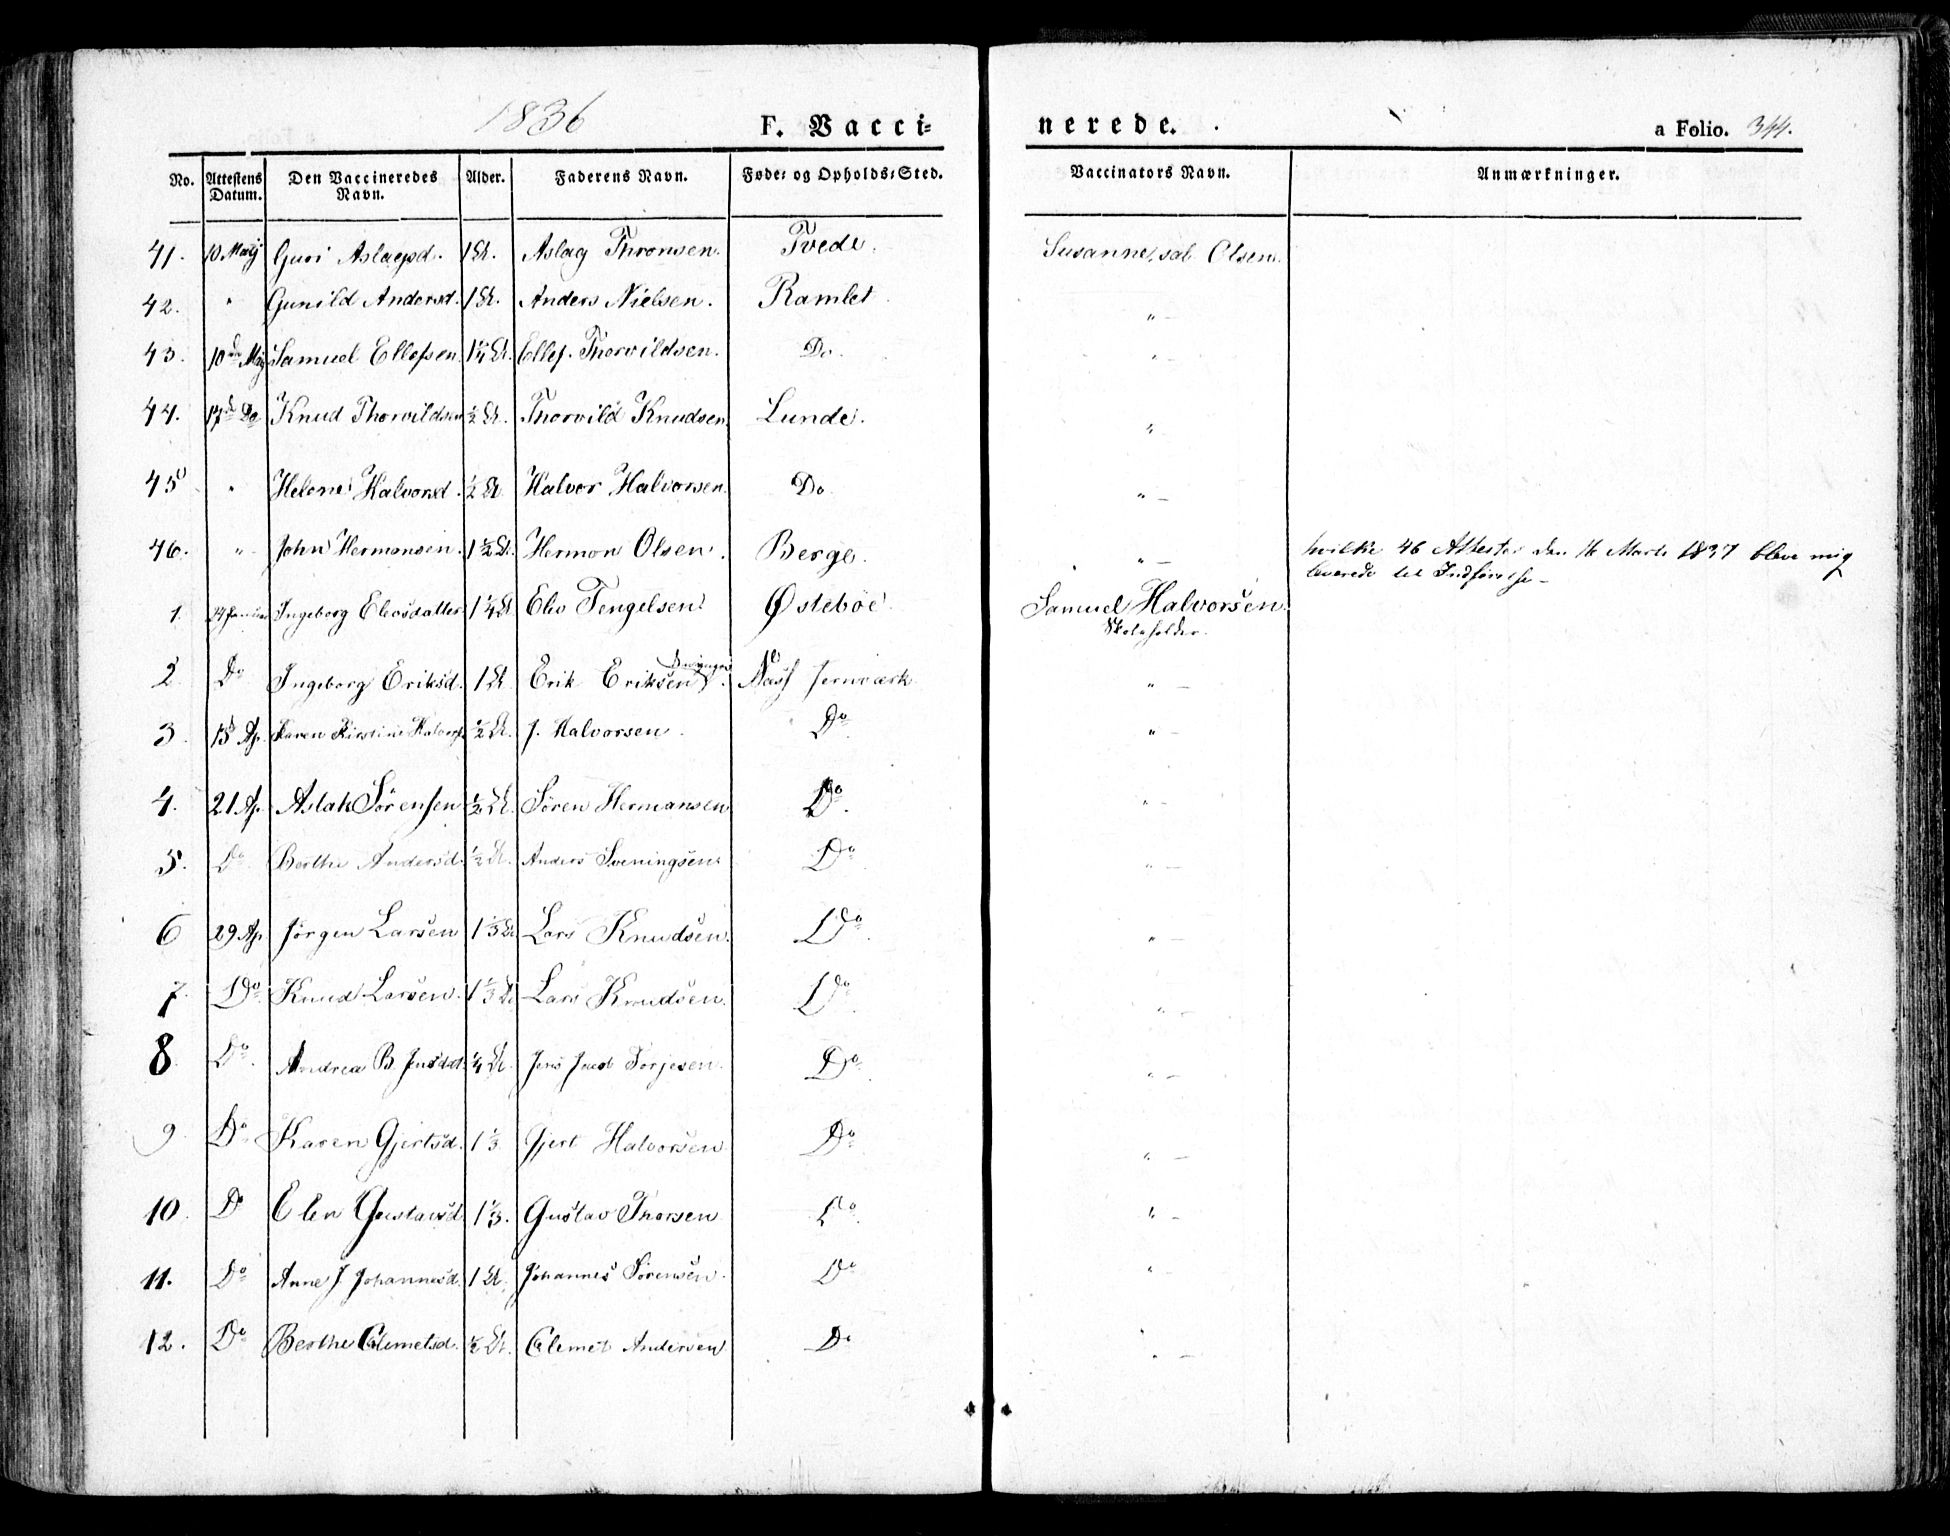 1836
F. Vacci-
nerede.
a Folio. 344.
No. Attestens Datum. Den Vaccineredes Navn. Alder. Faderens Navn. Føde- og Opholds-Sted. Vaccinators Navn. Anmærkninger.
41. 10 Maij Guri Aslaegsd. 1 Aslag Thronsen. Tvede. Susanne sal. Olsen.
42. " Gunild Andersd. 1 Anders Nielsen. Ramlet " —
43. 10de Maij Samuel Ellefsen 1¼ Ellef Thorvildsen. Do. " —
44. 17de Do Knud Thorvildsen ½ Thorvild Knudsen Lunde. "
45 " Helene Halvorsd. ½ Halvor Halvorsen Do. " —
46. " John Hermansen. 1½ Hermon Olsen. Berge. " — hvilke 46 Attester den 16 Marti 1837 bleve mig
leverede til Indførelse —
1. Ingeborg Elevsdatter 1¼ Elev Tengelsen Østebøe. Samuel Halvorsen
Skoleholder.
2. Do Ingeborg Eriksd. 1 Erik Eriksen Næss Jernværk " —
3 15 Ap. Karen Kirstine Halvors ½ J. Halvorsen Do " —
4. 21 Ap. Aslak Sörensen ½ Sören Hermansen Do. " —
5. Do Berthe Andersd. ½ Anders Sveningsen Do " —
6 29 Ap. Jörgen Larsen 1⅓ Lars Knudsen. Do. " —
7. Do. Knud Larsen. 1⅓ Lars Knudsen. Do " —
8 Do. Andrea B. Jensdat. ¼ Jens Jacob Torjesen. Do. " —
9. Do. Karen Gjertsd. 1⅓ Gjert Halvorsen Do " —
10. D Elen Gustavsd. 1⅓. Gustav Thorsen Do. " —
11. Do Anne J Johannesd. 1 Johannes Sörensen. Do " —
12. Do Berthe Clemetsd. ½ Clemet Andersen Do " —